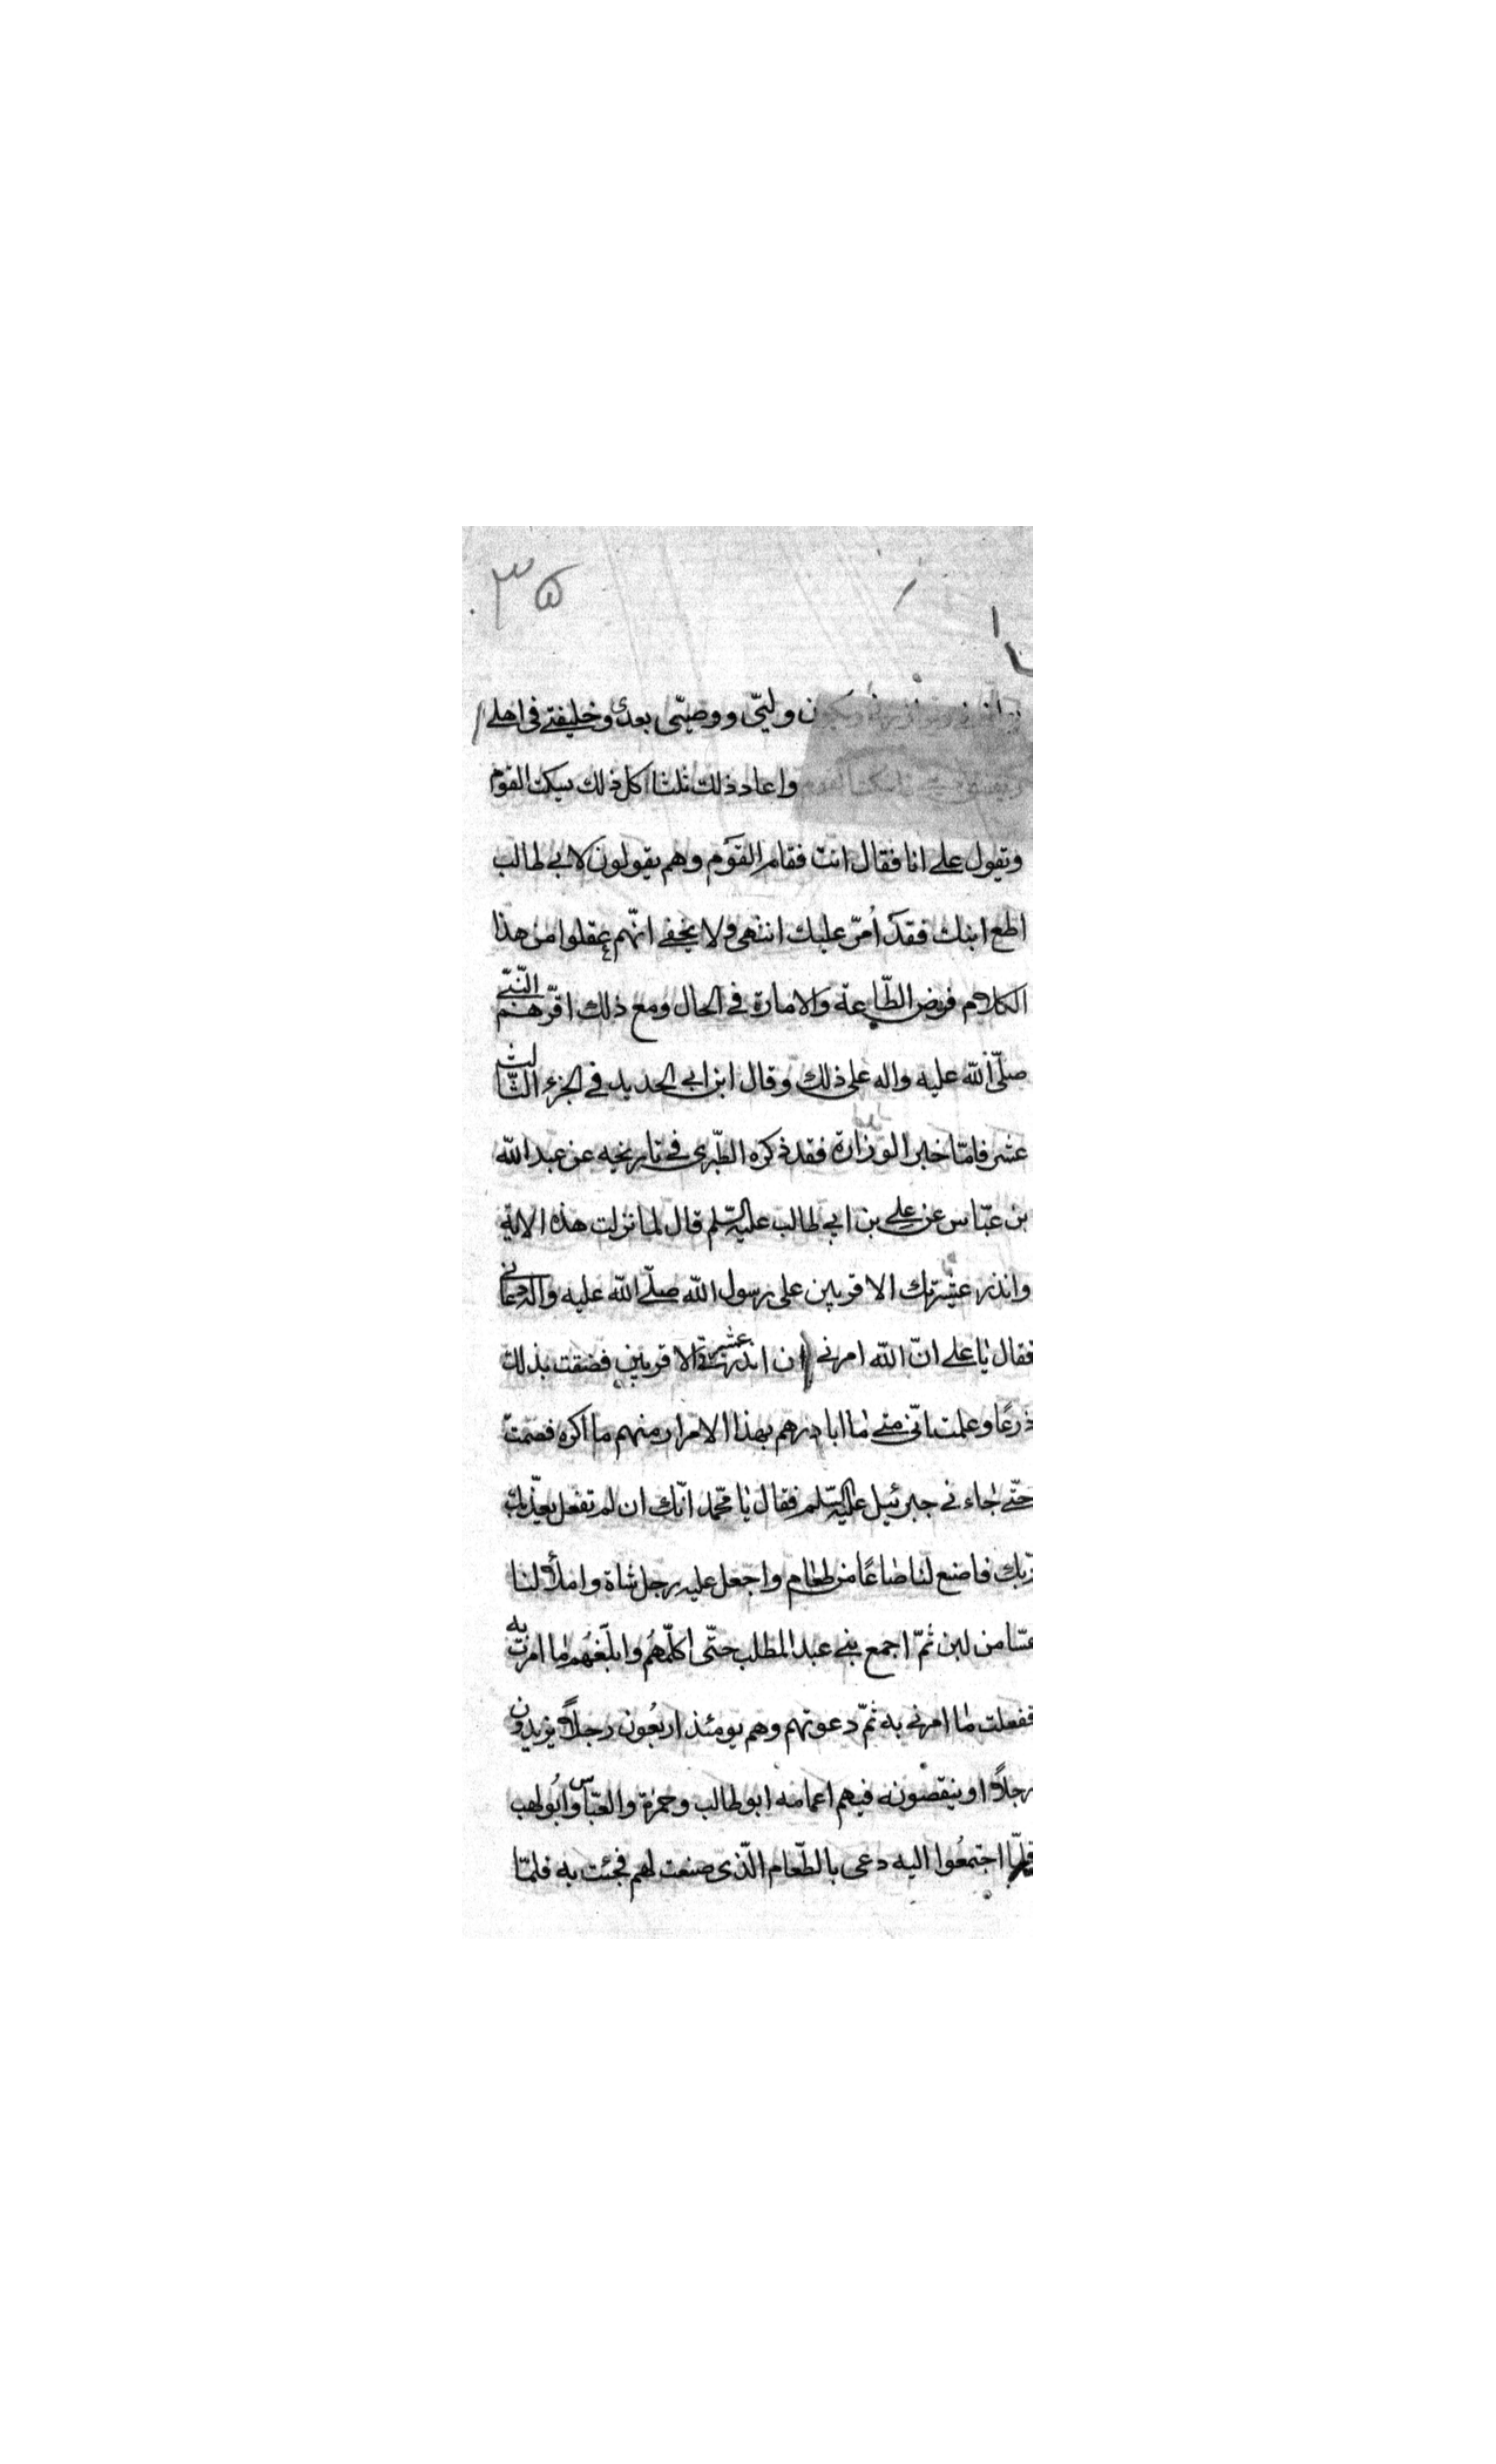 ٣۵
ن وليّي ووصيّي بعدي وخليفتي في اهلي
واعاد ذلك ثلثا كل ذلك يسكت القوم
ويقول علي انا فقال انت فقام القوم وهم يقولون لابي طالب
اطع ابنك فقد اُمّر عليك انتهى ولا يخفى انّهم عقلوا من هذا
الكلام فرض الطّاعة والامارة في الحال ومع ذلك اقرّهم النّبيّ
صلّى الله عليه واله على ذلك وقال ابن ابي الحديد في الجزء الثّالث
عشر فامّا خبر الوزارة فقد ذكره الطّبري في تاريخه عن عبد الله
بن عبّاس عن علي بن ابي طالب عليه السّلم قال لما نزلت هذه الاية
وانذر عشيرتك الاقربين على رسول الله صلّى الله عليه واله دعاني
فقال يا علي انّ الله امرني ان انذر عشيرتك الاقربين فضقت بذلك
ذرعًا وعلمت انّي متى ما اباد رهم بهذا الامر ار منهم ما اكره فصمتّ
حتّى جاءني جبرئيل عليه السّلم فقال يا محمّد انّك ان لم تفعل يعذّبك
ربّك فاصنع لنا صاعًا من طعام واجعل عليه رجل شاة واملأ لنا
عسّا من لبن ثمّ اجمع بني عبد المطلب حتّى اكلّمهُم وابلّغهُم ما امرت به
ففعلت ما امرني به ثمّ دعوتهم وهم يومئذ اربعُون رجلاً يزيدون
رجلاً او ينقصونه فيهم اعمامه ابو طالب وحمزة والعبّاس وابُو لهب
فلمّا اجتمعُوا اليه دعى بالطّعام الّذي صنعت لهم فجئت به فلمّا